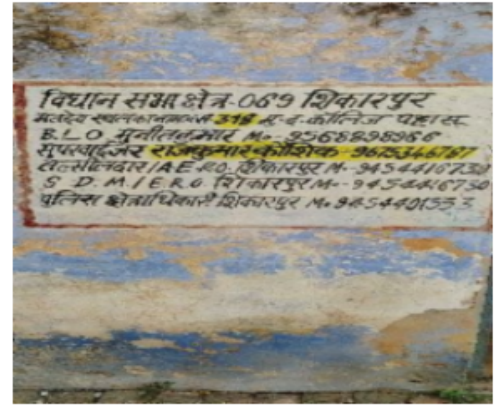 विधान सभा क्षेत्र-069 शिकारपुर
318 कॉलिज पहासू
B.L.O सुनीलकुमार Mo-9568898966
सुपरवाईजर राजकुमार कौशिक-9675346787
तहसीलदार/A.E.R.O. शिकारपुर M-9454416750
S D.M/E.R.O शिकारपुर M-9454416750
पुलिस क्षेत्राधिकारी शिकारपुर Mo 9454401553